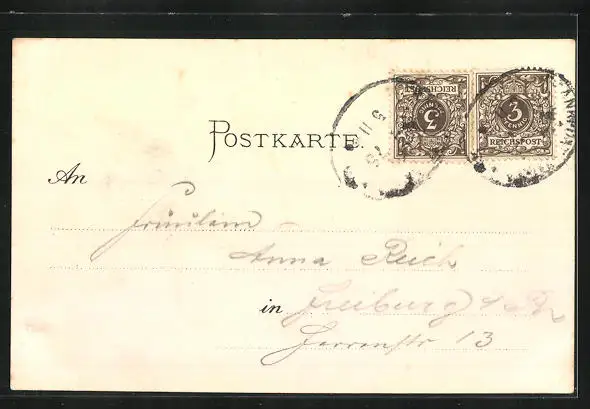 3
PFENNIG
REICHSPOST
3
PFENNIG
REICHSPOST
POSTKARTE
An
Fräulein
Anna Reich
in Freiburg i/Br
Herrenstr 13